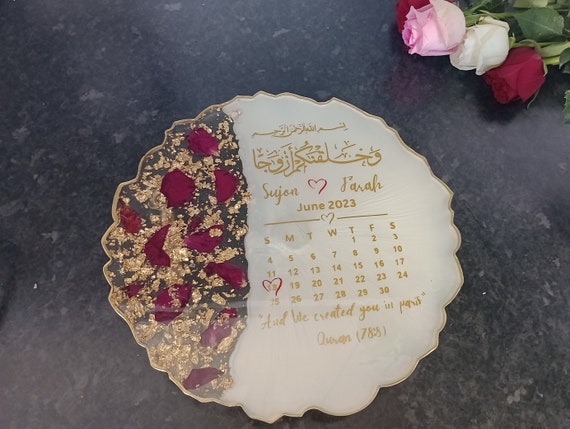 بسم الله الرحمن الرحيم
وَخَلَقْنَٰكُمْ أَزْوَٰجًا
Sujon Farah
June 2023
S M T W T F S
1 2 3
4 5 6 7 8 9 10
11 12 13 14 15 16 17
18 19 20 21 22 23 24
25 26 27 28 29 30
"And We created you in paris"
Quran (78:8)